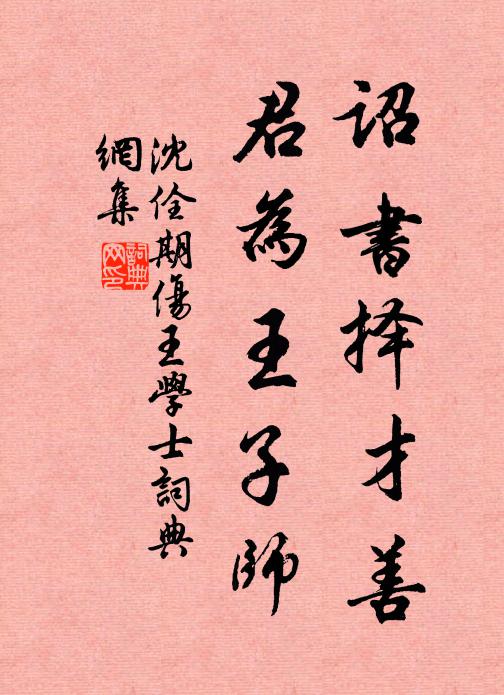 诏書择才善
君為王子師
沈佺期傷王學士詞典
網集
詞典
网印